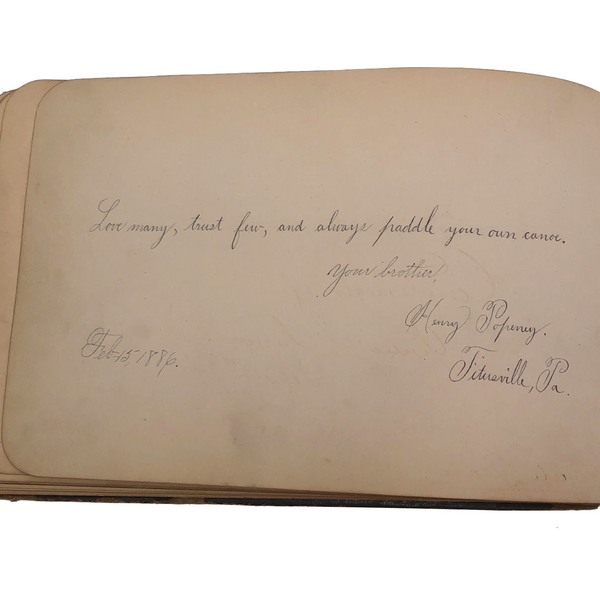 Love many, trust few, and always paddle your own canoe.
Your brother,
Henry Popeney.
Feb. 15, 1886.
Titusville, Pa.